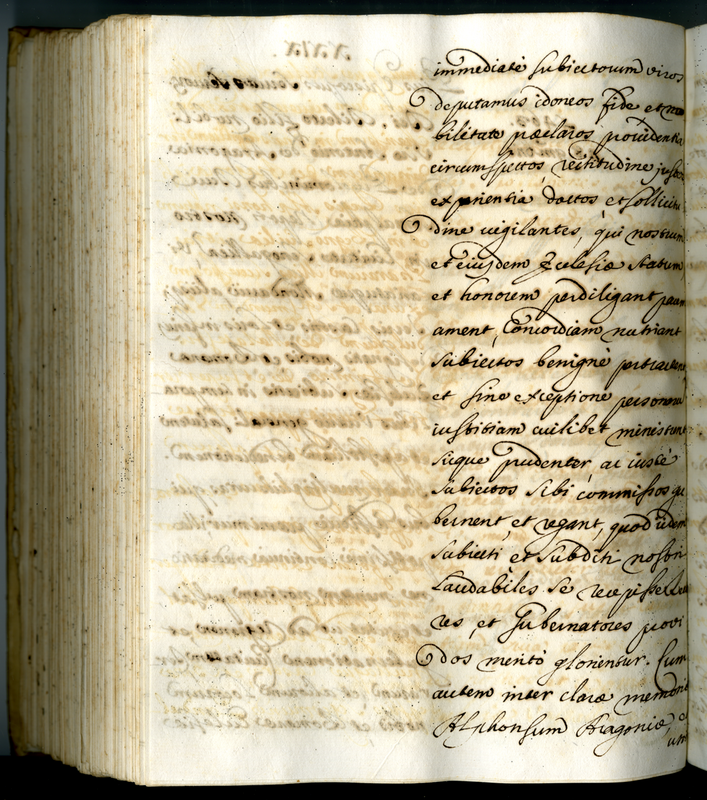 immediatè subiectorum viros
deputamus idoneos fide et no
bilitate præclaros providentia
circumspectos, rectitudine justos
experientia doctos et sollicitu
dine vigilantes, qui nostrum
et eiusdem Ecclesiæ statum
et honorem perdiligant pacem
ament, Concordiam nutriant
subiectos benignè pertractent
et sine exceptione personarum
iustitiam cuilibet ministrent
sicque prudenter ac iustè
subiectos sibi commissos gu
bernent, et regant, quod iidem
subiecti et subditi nostri
laudabiles se recepisse
res, et gubernatores provi
dos meritò glorientur. Cum
autem inter claræ memoriæ
Alphonsum Aragoniæ, et